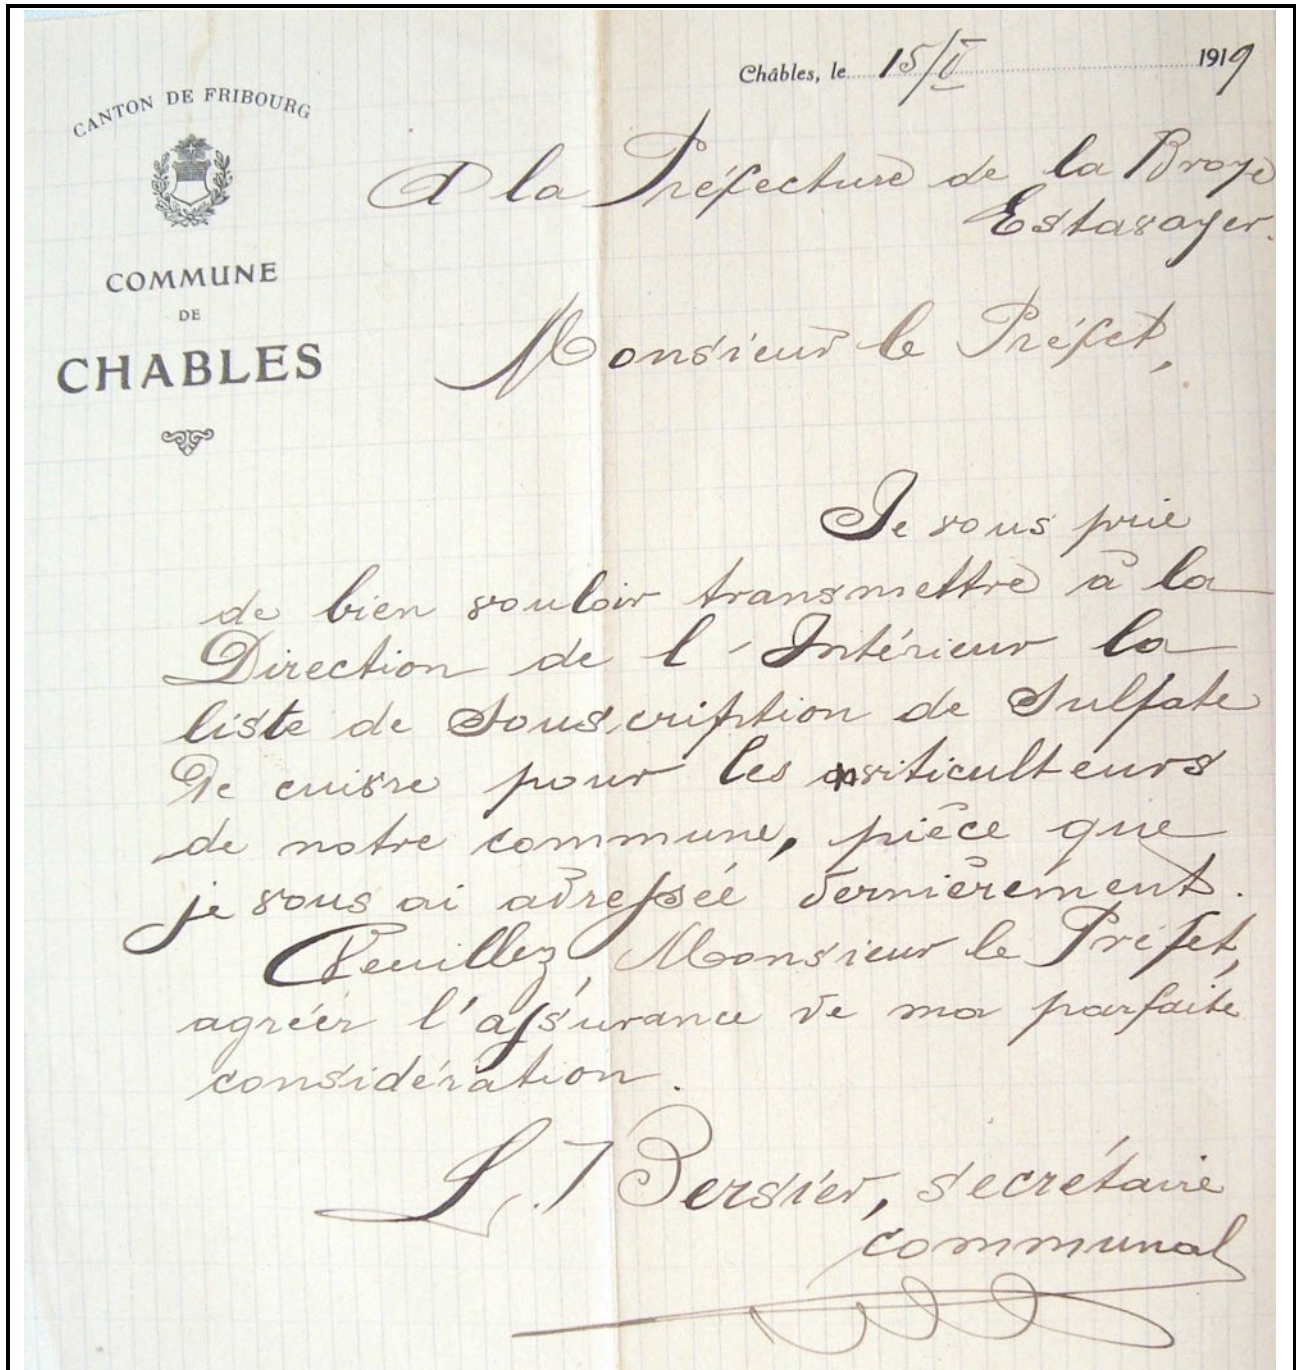 CANTON DE FRIBOURG
COMMUNE
DE
CHABLES
Châbles, le 15/II 1919
A la Préfecture de la Broye
Estavayer.
Monsieur le Préfet,
Je vous prie
de bien vouloir transmettre à la
Direction de l'Intérieur la
liste de Souscription de Sulfate
De cuivre pour les viticulteurs
de notre commune, pièce que
je vous ai adressée dernièrement.
Veuillez, Monsieur le Préfet,
agréer l'assurance de ma parfaite
considération.
Bersier, secrétaire
communal